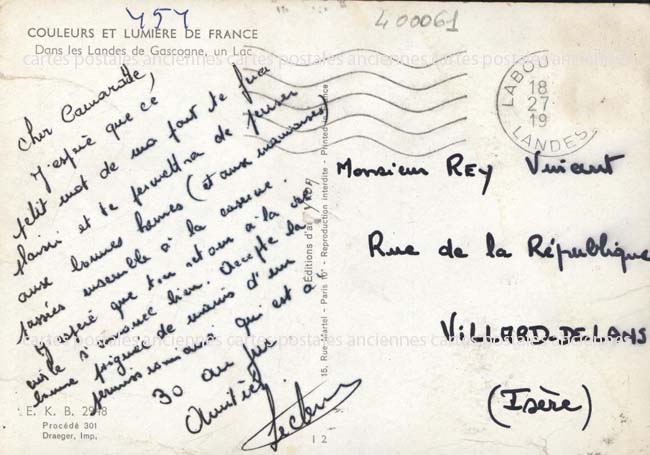 454
400061
COULEURS ET LUMIÈRE DE FRANCE
Dans les Landes de Gascogne, un Lac
cartes postales anciennes cartes postales anciennes cartes postales anciennes
LABOU
18
27
19
LANDES
Cher Camarade,
J'espère que ce
petit mot de ma part te fera
plaisir et te permettra de penser
aux bonnes heures (et aux mauvaises)
passées ensemble à la caserne.
J'espère que ton retour à la vie
civile s'annonce bien. Accepte la
bonne poignée de mains d'un
permissionnaire qui est à
30 au jus
Amitiés
Monsieur REY Vincent
Rue de la République
VILLARD-DE-LANS
(Isère)
Éditions d'art YVON
15, Rue Martel - Paris 10e - Reproduction interdite - Printed in France
cartes postales anciennes cartes postales anciennes cartes postales anciennes
E. K. B. 2918
Procédé 301
Draeger, Imp.
I 2